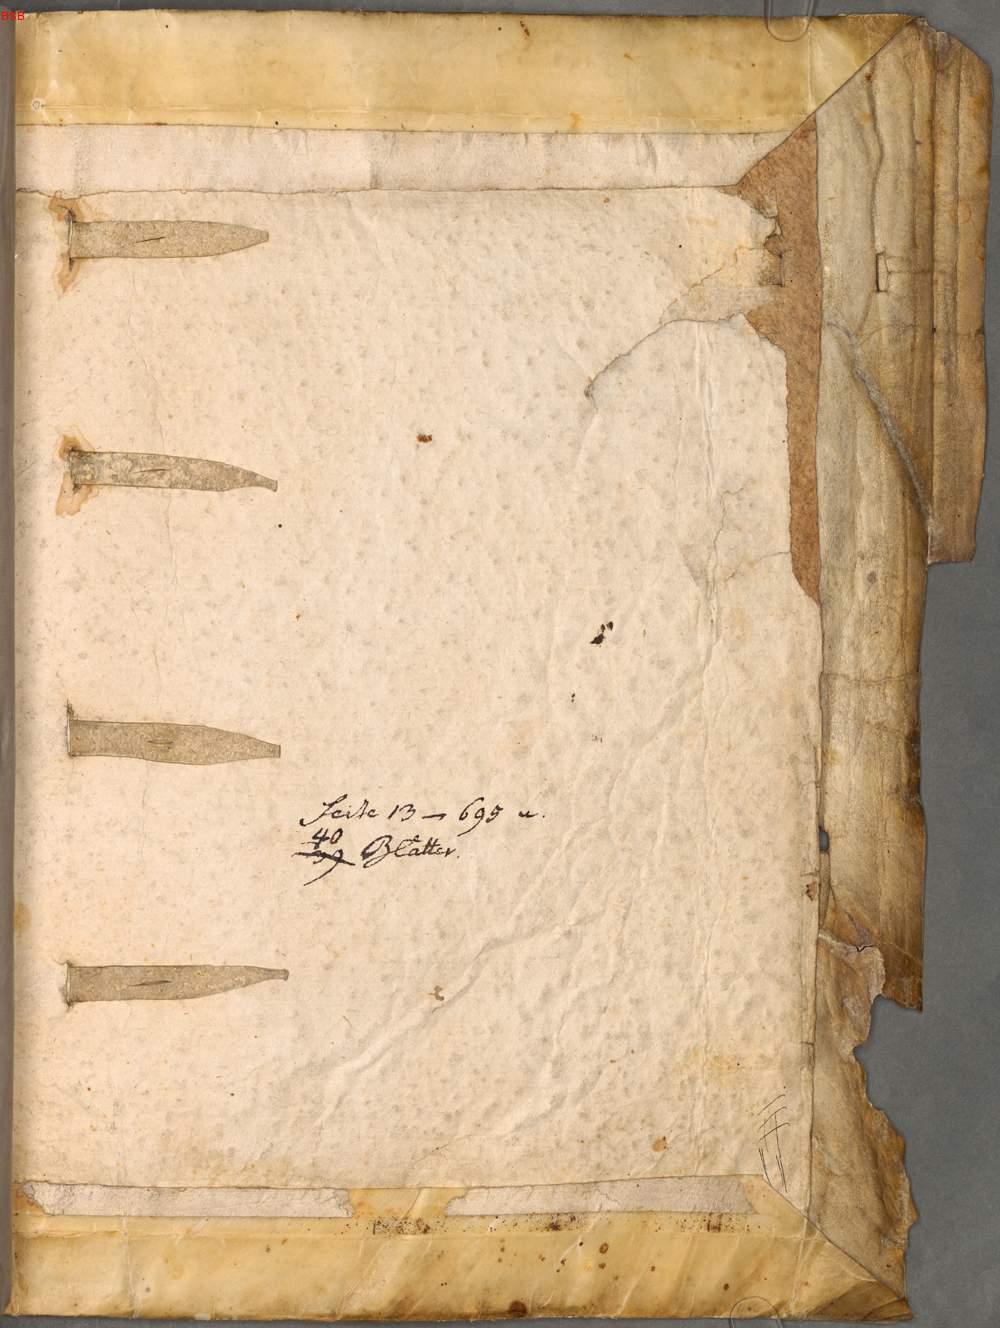 BSB
Seite 13 – 695 u.
40
39 Blätter.